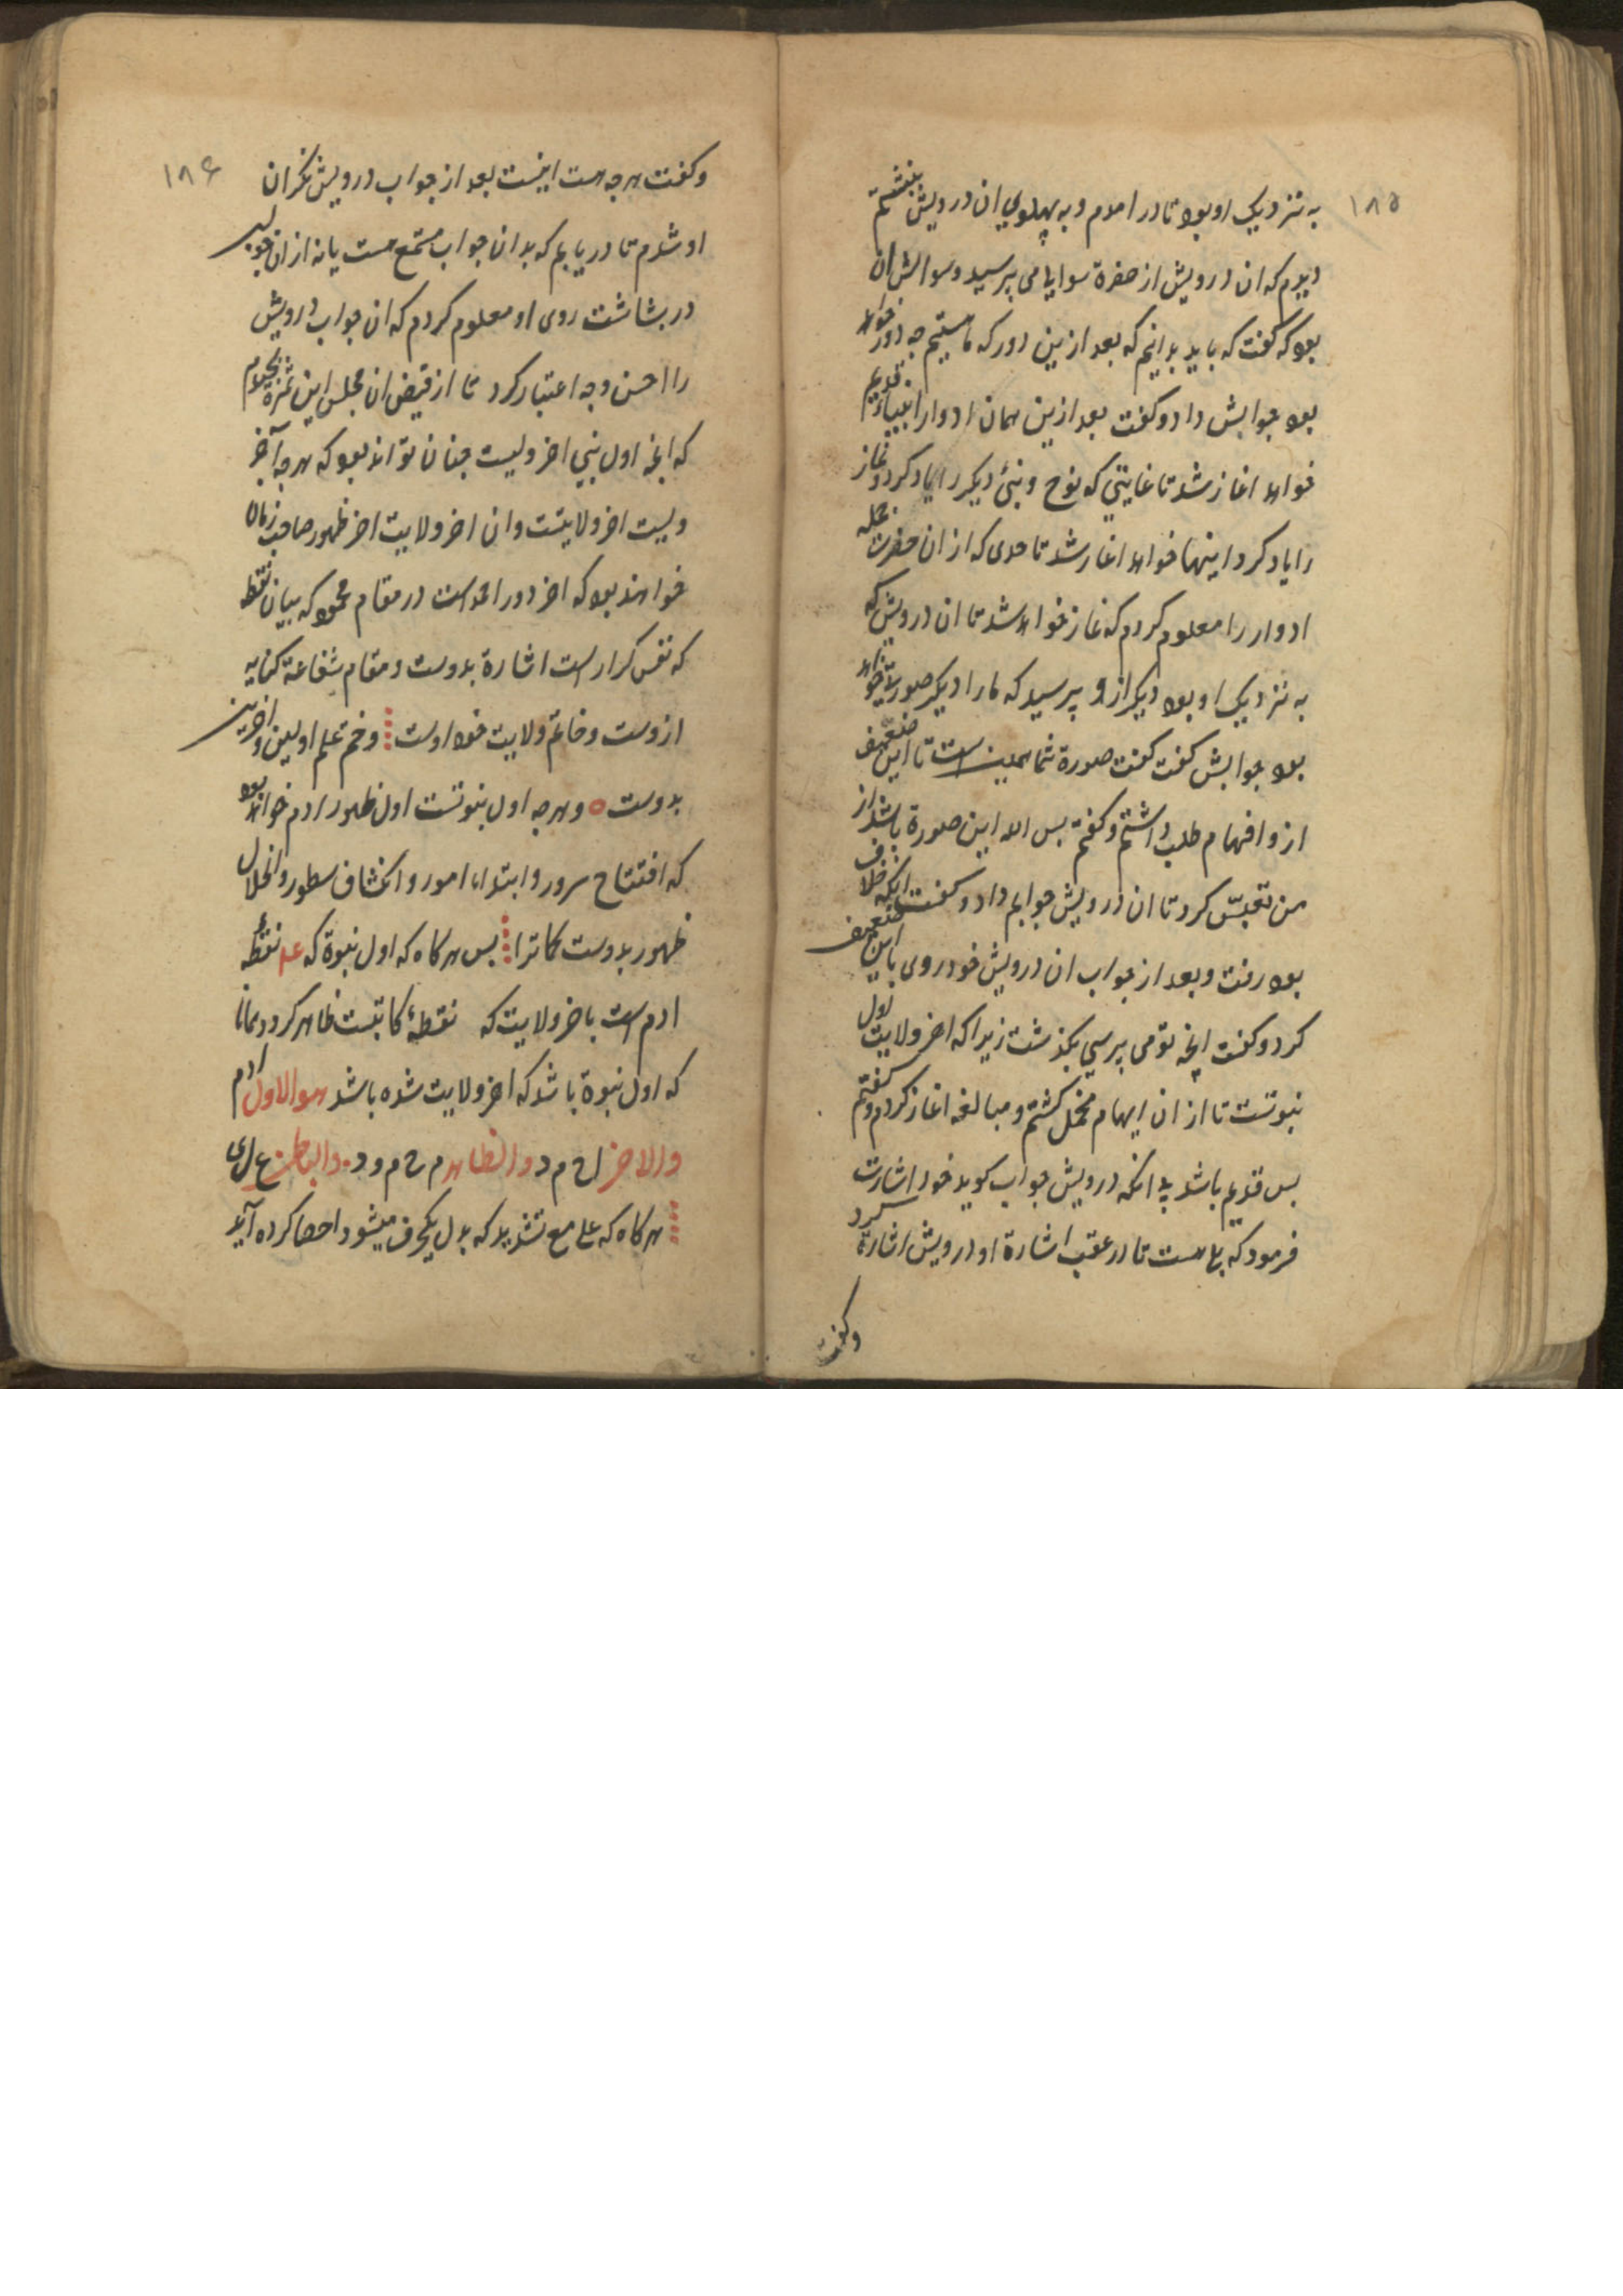 ۱۸۵
به نزدیک او بود تا در امدم و به پهلوی ان درویش بنشستم
دیدم که ان درویش از حضرة سوالها می پرسید و سوالش ان
بود که گفت که باید بدانیم که بعد ازین دور که ما هستیم چه دور خواهد
بود جوابش داد و گفت بعد ازین همان ادوار انبیاء قدیم
خواهد اغاز شد تا غایتی که نوح و نبئ دیگر را یاد کرد و نماز
را یاد کرد اینها خواهد اغاز شد تا حدی که از ان حضرت جمله
ادوار را معلوم کردم که غاز خواهد شد تا ان درویش که
به نزدیک او بود دیگر ازو پرسید که ما را دیگر صورت خواهد
بود جوابش گفت گفت صورة شما همین است تا این ضعیف
ازو افهام طلب داشتم و گفتم بس اله این صورة باشد از
من تجسّس کرد تا ان درویش جوابم داد و گفت انکه خلاف
بود رفت و بعد از جواب ان درویش خود روی باین ضعیف
کرد و گفت انچه تو می پرسی بگذشت زیرا که اخر ولایت اول
نبوتست تا از ان ایهام منحل گشتم و مبالغه اغاز کردم و گفتم
بس قدیم باشد بدانکه درویش جواب گوید خود اشارت
فرمود که بلی هست تا در عقب اشارة او درویش اشارة کرد
وگفت
۱۸۶
وگفت هرچه هست اینست بعد از جواب درویش نگران
او شدم تا دریابم که بدان جواب متمتع هست یا نه از ان جواب
در بشاشت روی او معلوم کردم که ان جواب درویش
را احسن وجه اعتبار کرد تا از فیض ان مجلس این ثمره بچیدم
که انچه اول نبی اخر ولیست چنان تواند بود که هرچه آخر
ولیست اخر ولایتست و ان اخر ولایت اخر ظهور صاحب زمان
خواهند بود که اخر دور احمد است در مقام محمود که بیان نقطه
که نفس کرار است اشارة بدوست و مقام شفاعة کنایه
ازوست و خاتم ولایت خود اوست و ختم علم اولین و اخرین
بدوست و هرچه اول نبوتست اول ظهور ادم خواهد بود
که افتتاح سرور و ابتداء امور و انکشاف سطور و انحلال
ظهور بدوست کما ترا بس هرکاه که اول نبوة که عد نقطه
ادم است باخر ولایت که نقطهٔ کاتبست ظاهر کردد همانا
که اول نبوة باشد که اخر ولایت شده باشد هوالاول ادم
والاخر ا ح م د والظاهر م ح م و د والباطن ع ل ی
هرکاه که علی مع تشدید که بدل یکحرف میشود احصا کرده آید